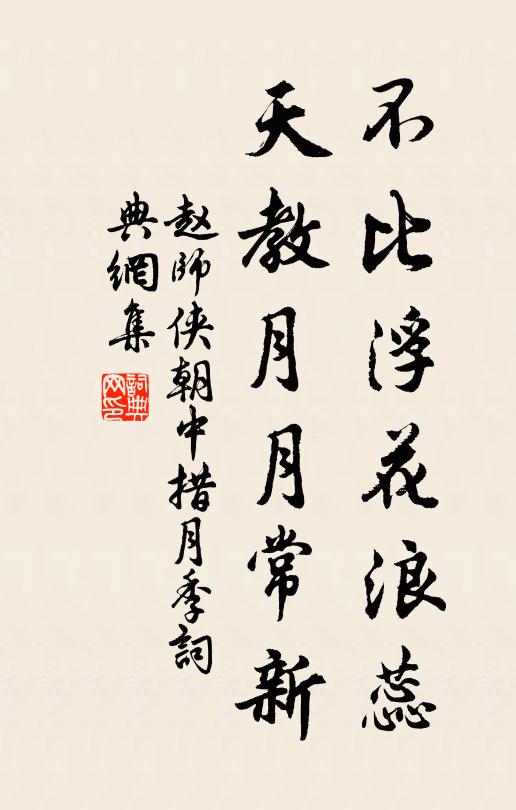 不比浮花浪蕊
天教月月常新
赵師侠朝中措月季詞
典網集
詞典网印